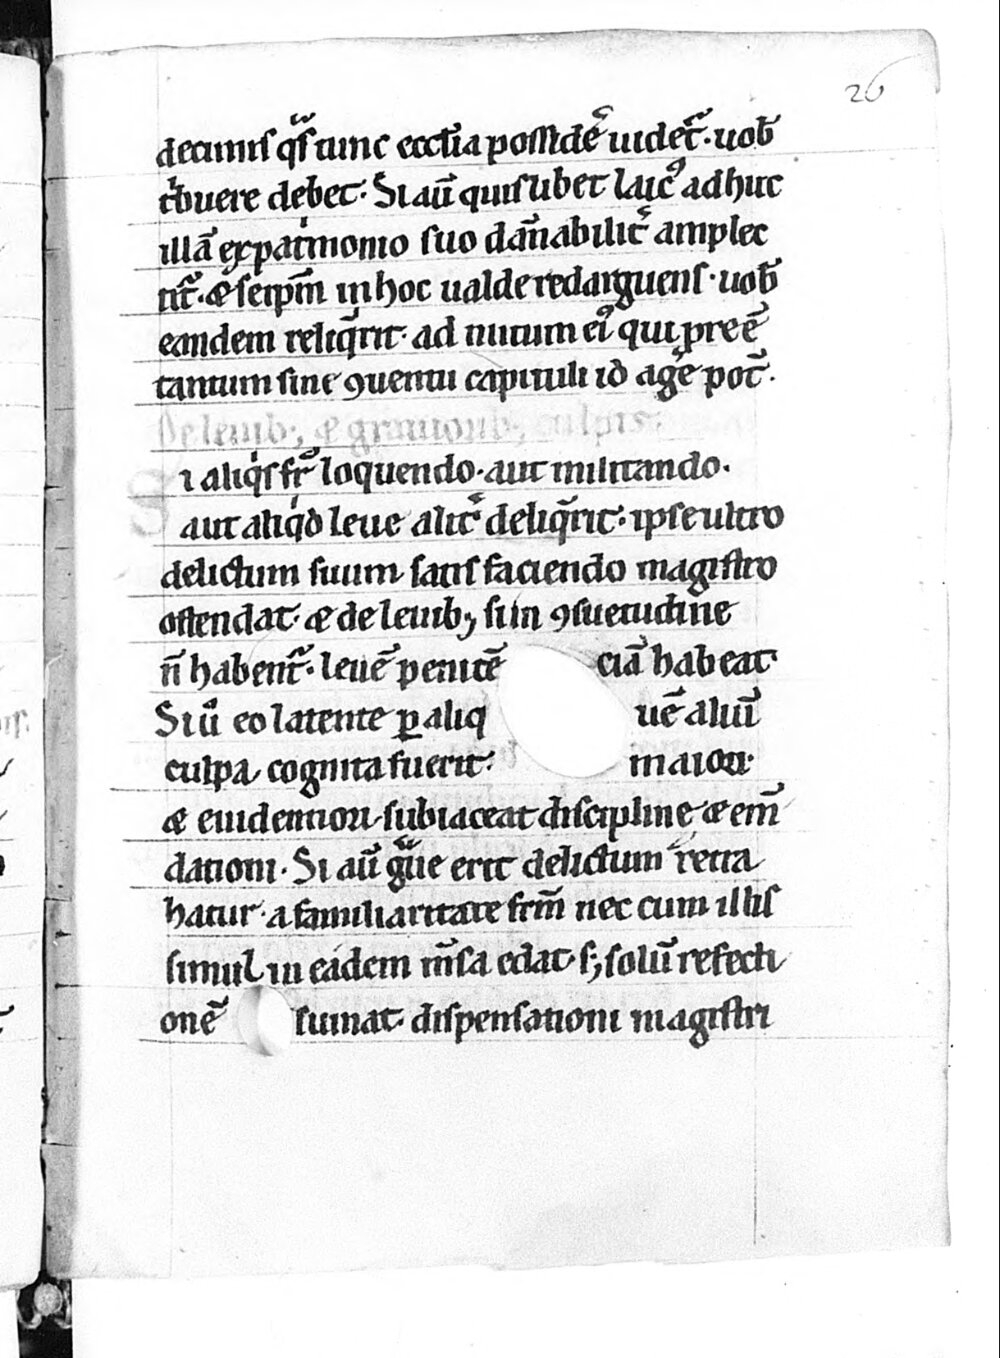 26
decimis qͣs tunc eccl̄ia possidē uidet᷑. uob̄
tͥbuere debet. Si aū quislibet laicꝰ adhuc
illā ex patͥmonio suo dān̄abilit᷑ amplec
tit᷑. ⁊ seip̄m in hoc ualde redarguens. uob̄
eandem reliq̄rit. ad nutum eiꝰ qui preē
tantum sine ꝯuentu capituli id agē pot̄.
De leuib; ⁊ grauiorib; culpis.
Si aliqͥs fr̄ loquendo. aut militando.
aut aliqͥd leue alit᷑ deliq̄rit. ipse ultro
delictum suum satis faciendo magistro
ostendat. ⁊ de leuib; si in ꝯsuetudine
n̄ habent᷑. leuē penitē ciā habeat.
Si ū eo latente ꝑ aliq uē aliū
culpa cognita fuerit. maiori.
⁊ euidentiori subiaceat discipline ⁊ em̄
dationi. Si aū gͣue erit delictum retra
hatur. a familiaritate fr̄m nec cum illis
simul in eadem m̄sa edat. s; solū refecti
onē sumat. dispensationi magistri